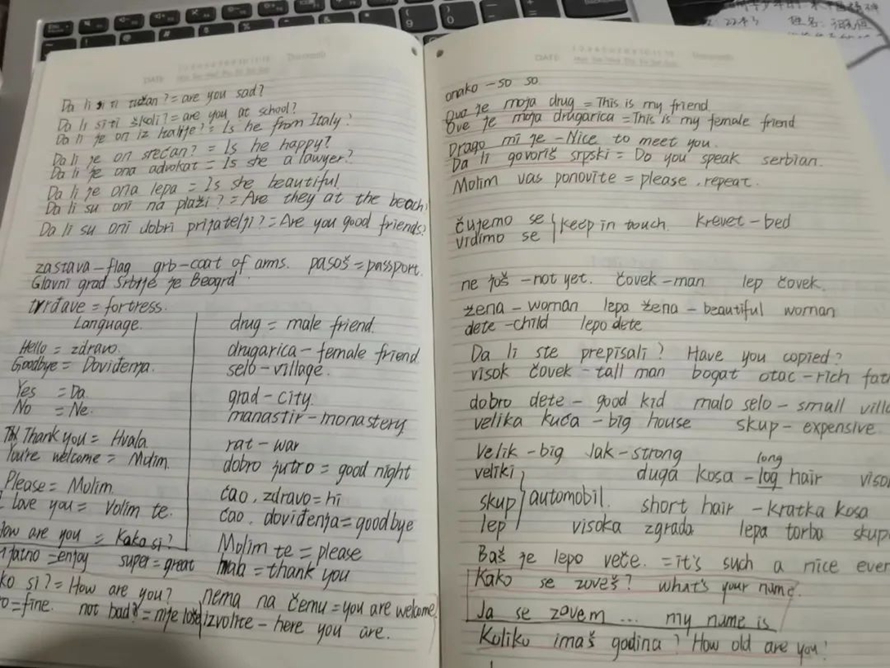 Da li si ti tužan? = are you sad?
Da li si ti školi? = are you at school?
Da li je on iz Italije? = Is he from Italy?
Da li je on srećan? = Is he happy?
Da li je ona advokat = Is she a lawyer?
Da li je ona lepa = Is she beautiful
Da li su oni na plaži? = Are they at the beach
Da li su oni dobri prijatelji? = Are you good friends?
zastava - flag grb - coat of arms. pasoš = passport.
Glavni grad Srbije je Beogrd
tvrđave = fortress.
Language.
Hello = zdravo.
Goodbye = Doviđenja.
Yes = Da
No = Ne.
Thank you = Hvala
You're welcome = Molim.
Please = Molim.
I love you = Volim te.
How are you = Kako si?
enjoy super = great
ko si? = How are you?
fine. not bad? = nije loše
drug = male friend.
drugarica - female friend
selo - village.
grad - city.
manastir - monastery
rat - war
dobro jutro = good night
ćao, zdravo = hi
ćao, doviđenja = goodbye
Molim te = please
hvala = thank you
nema na čemu = you are welcome
izvolite - here you are.
DATE
onako - so so.
Ovo je moja drug = This is my friend
Ove je moja drugarica = This is my female friend
Drago mi je - Nice to meet you.
Da li govoriš srpski = Do you speak serbian.
Molim vas ponovite = please, repeat.
čujemo se
vidimo se
keep in touch. krevet - bed
ne još - not yet. čovek - man lep čovek.
žena - woman lepa žena - beautiful woman
dete - child lepo dete
Da li ste prepisali? Have you copied?
visok čovek - tall man bogat otac - rich fat
dobro dete - good kid malo selo - small villa
velika kuća - big house skup - expensive
Velik - big Jak - strong
long
veliki duga kosa - log hair viso
skup automobil. short hair - kratka kosa
lep visoka zgrada lepa torba skup
Baš je lepo veče. = it's such a nice even
Kako se zoveš? what's your name.
Ja se zovem ... my name is
Koliko imaš godina? How old are you?